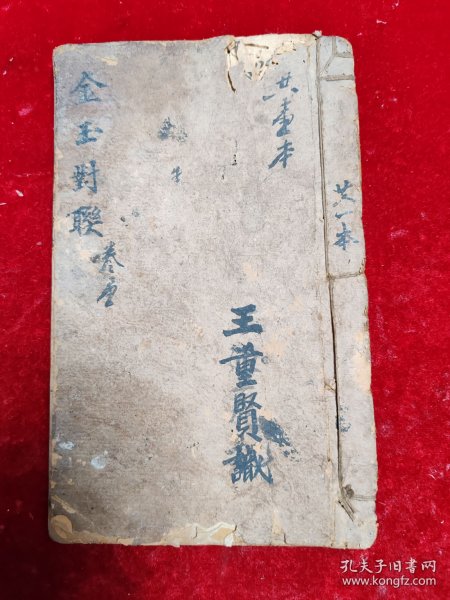 共壹本
共一本
金玉對聯
卷壹
王重賢識
孔夫子旧书网
www.kongfz.com